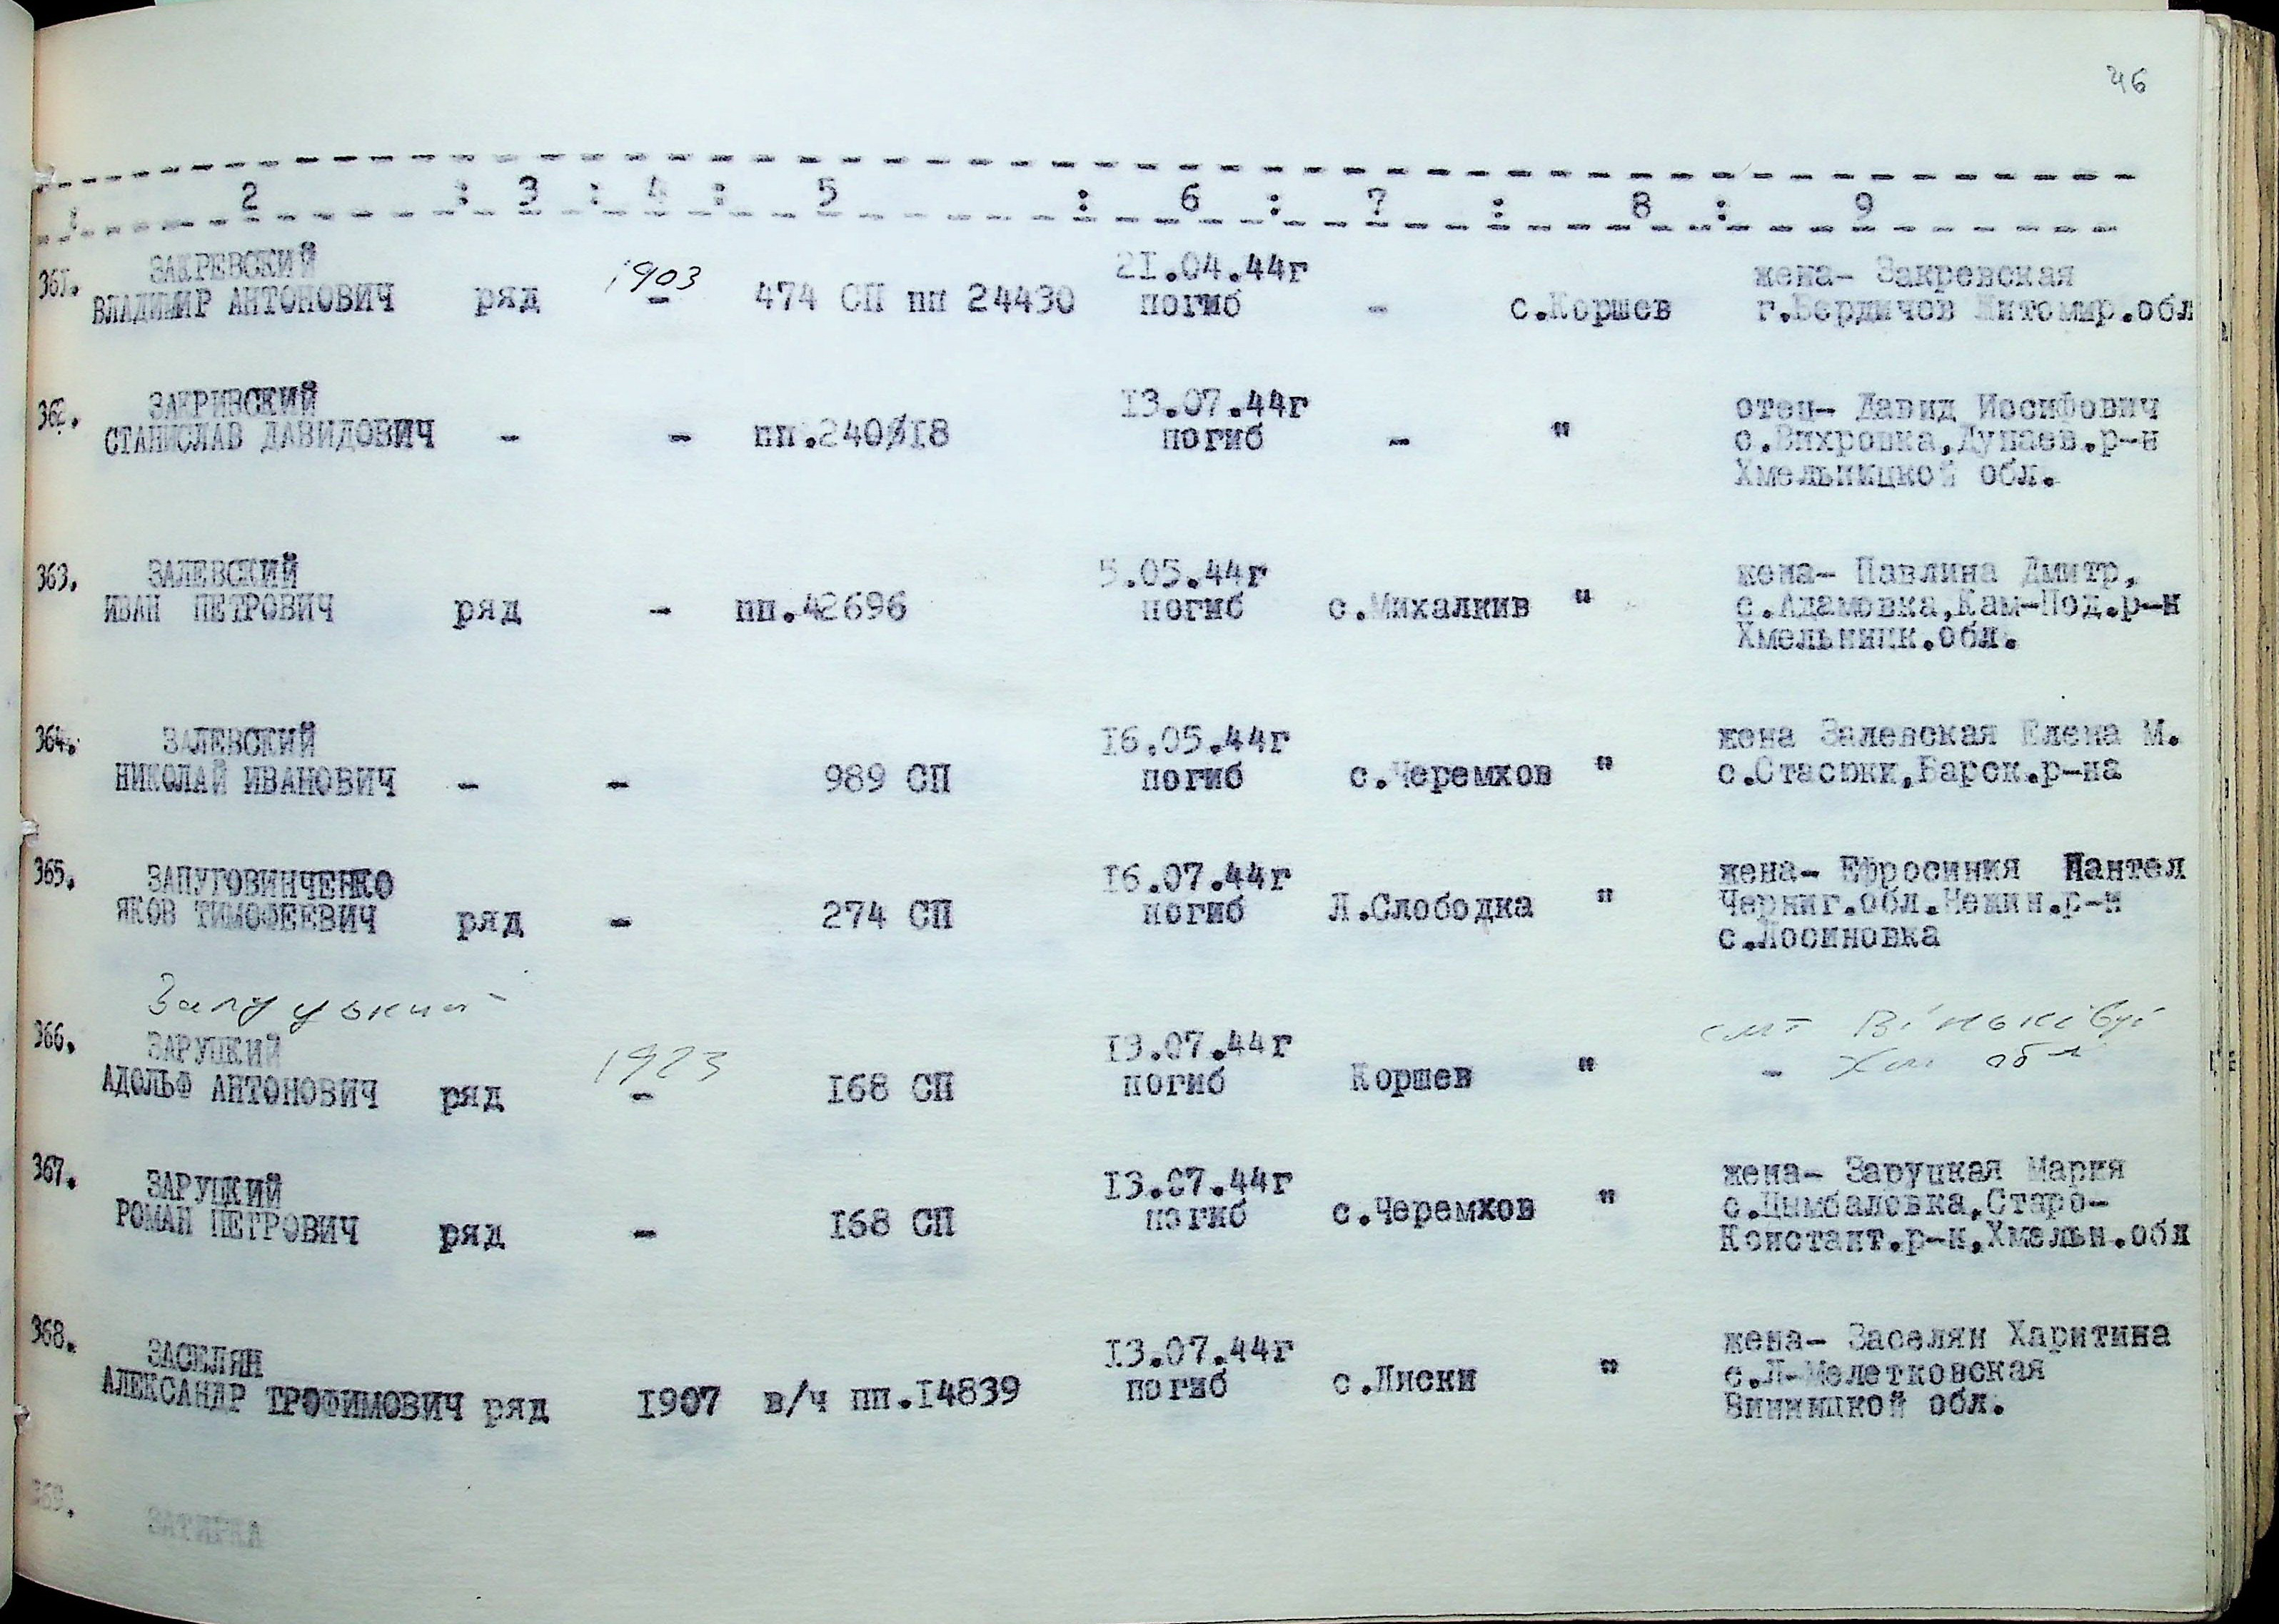 46
1 : 2 : 3 : 4 : 5 : 6 : 7 : 8 : 9
361. ЗАКРЕВСКИЙ 1903 21.04.44г жена- Закревская
ВЛАДИМИР АНТОНОВИЧ ряд - 474 СП пп 24430 погиб - с.Коршев г.Бердичов Житомир.обл
362. ЗАКРИВСКИЙ 13.07.44г отец- Давид Иосифович
СТАНИСЛАВ ДАВИДОВИЧ - - пп.240018 погиб - " с.Вихровка,Дунаев.р-н
Хмельницкой обл.
363. ЗАЛЕВСКИЙ 5.05.44г жена- Павлина Дмитр.
ИВАН ПЕТРОВИЧ ряд - пп.42696 погиб с.Михалкив " с.Адамовка,Кам-Под.р-н
Хмельницк.обл.
364. ЗАЛЕВСКИЙ 16.05.44г жена Залевская Елена М.
НИКОЛАЙ ИВАНОВИЧ - - 989 СП погиб с.Черемхов " с.Стасюки,Барск.р-на
365. ЗАПУГОВИНЧЕНКО 16.07.44г жена- Ефросиния Пантел
ЯКОВ ТИМОФЕЕВИЧ ряд - 274 СП погиб Л.Слободка " Черниг.обл.Нежин.р-н
с.Лосиновка
366. ЗАРУЦКИЙ 1923 13.07.44г смт Віньківці
АДОЛЬФ АНТОНОВИЧ ряд - 168 СП погиб Коршев " - Хм обл
367. ЗАРУЦКИЙ 13.07.44г жена- Заруцкая Мария
РОМАН ПЕТРОВИЧ ряд - 168 СП погиб с.Черемхов " с.Цымбаловка,Старо-
Констант.р-н,Хмельн.обл
368. ЗАСЕЛЯН 13.07.44г жена- Заселян Харитина
АЛЕКСАНДР ТРОФИМОВИЧ ряд 1907 в/ч пп.14839 погиб с.Лиски " с.Л-Мелетковская
Винницкой обл.
369. ЗАТИРКА